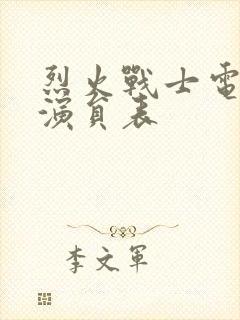 烈火戰士電
演員表
李文軍